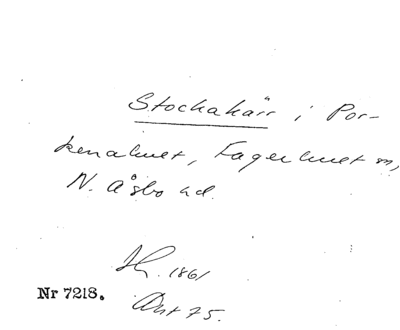 Stockakärr i Por-
kenahult, Fagerhult sn,
N. Åsbo hd.
1861
Nr 7218.
Ant 75.